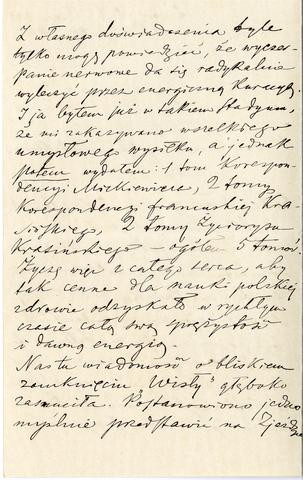 Z własnego doświadczenia tyle
tylko mogę powiedzieć, że wyczer-
panie nerwowe da się radykalnie
wyleczyć przez energiczną kuracyę.
I ja byłem już w takiem stadyum,
że mi zakazywano wszelkiego
umysłowego wysiłku, a jednak
potem wydałem: 1 tom Korespon-
dencyi Mickiewicza, 2 tomy
Korespondencyi francuskiej Kra-
sińskiego, 2 tomy Życiorysu
Krasińskiego – ogółem 5 tomów.
Życzę więc z całego serca, aby
tak cenne dla nauki polskiej
zdrowie odzyskało w rychłym
czasie całą swą sprężystość
i dawną energię.
Nas tu wiadomość o bliskiem
zamknięciu „Wisły" głęboko
zasmuciła. Postanowiono jedno-
myślnie przedstawić na Zjeździe